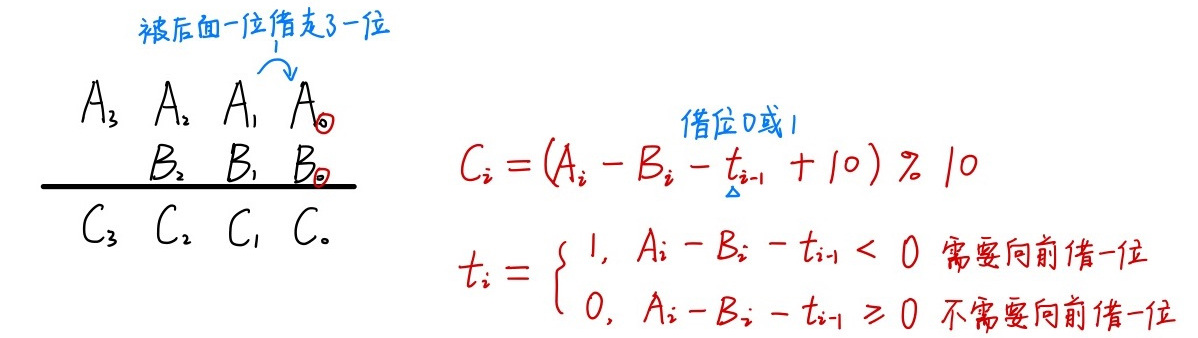 被后面一位借走了一位
1
A₃ A₂ A₁ A₀
B₂ B₁ B₀
C₃ C₂ C₁ C₀
借位0或1
Cᵢ = (Aᵢ - Bᵢ - tᵢ₋₁ + 10) % 10
tᵢ = { 1, Aᵢ - Bᵢ - tᵢ₋₁ < 0 需要向前借一位
0, Aᵢ - Bᵢ - tᵢ₋₁ ≥ 0 不需要向前借一位